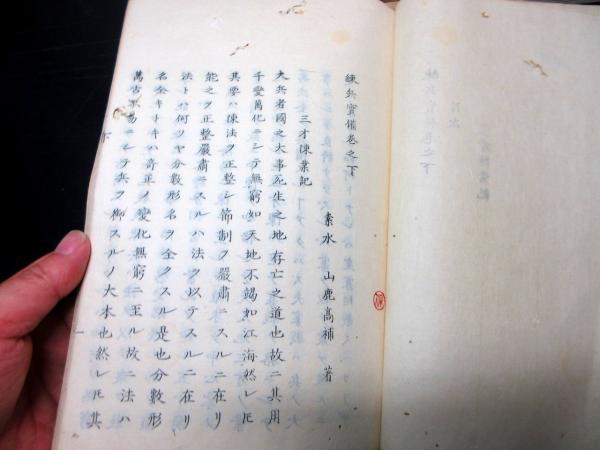 練兵實備巻之下
素水 山鹿高補 著
三才陳業記
夫兵者國之大事死生之地存亡之道也故ニ其用
千變萬化ニシテ無窮如天地不竭如江海然レ𪜈
其要ハ陳法ヲ正整シ節制ヲ嚴肅ニスルニ在リ
能之ヲ正整嚴肅ニスルハ法ヲ以テスルニ在リ
法トハ何ソヤ分數形名ヲ全クスル是也分數形
名全キトキハ奇正ノ變化無窮ニ至ル故ニ法ハ
萬古不易ニシテ兵ヲ御スルノ大本也然レ𪜈其
下